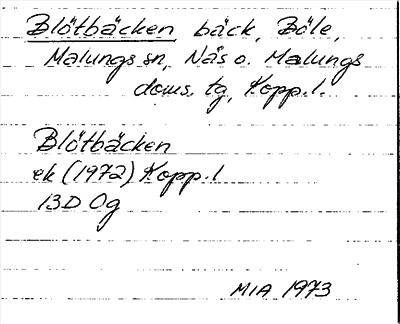 Blötbäcken bäck, Böle,
Malungs sn, Nås o. Malungs
doms. tg, Kopp.l.
Blötbäcken
ek (1972) Kopp.l
13D 0g
MIA 1973